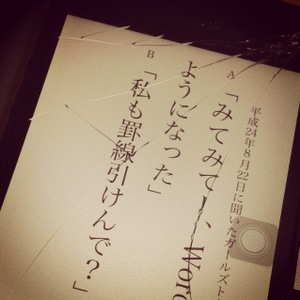 平成24年8月22日に聞いたガールズト
A
「みてみてー、Word
ようになった」
B
「私も罫線引けんで？」